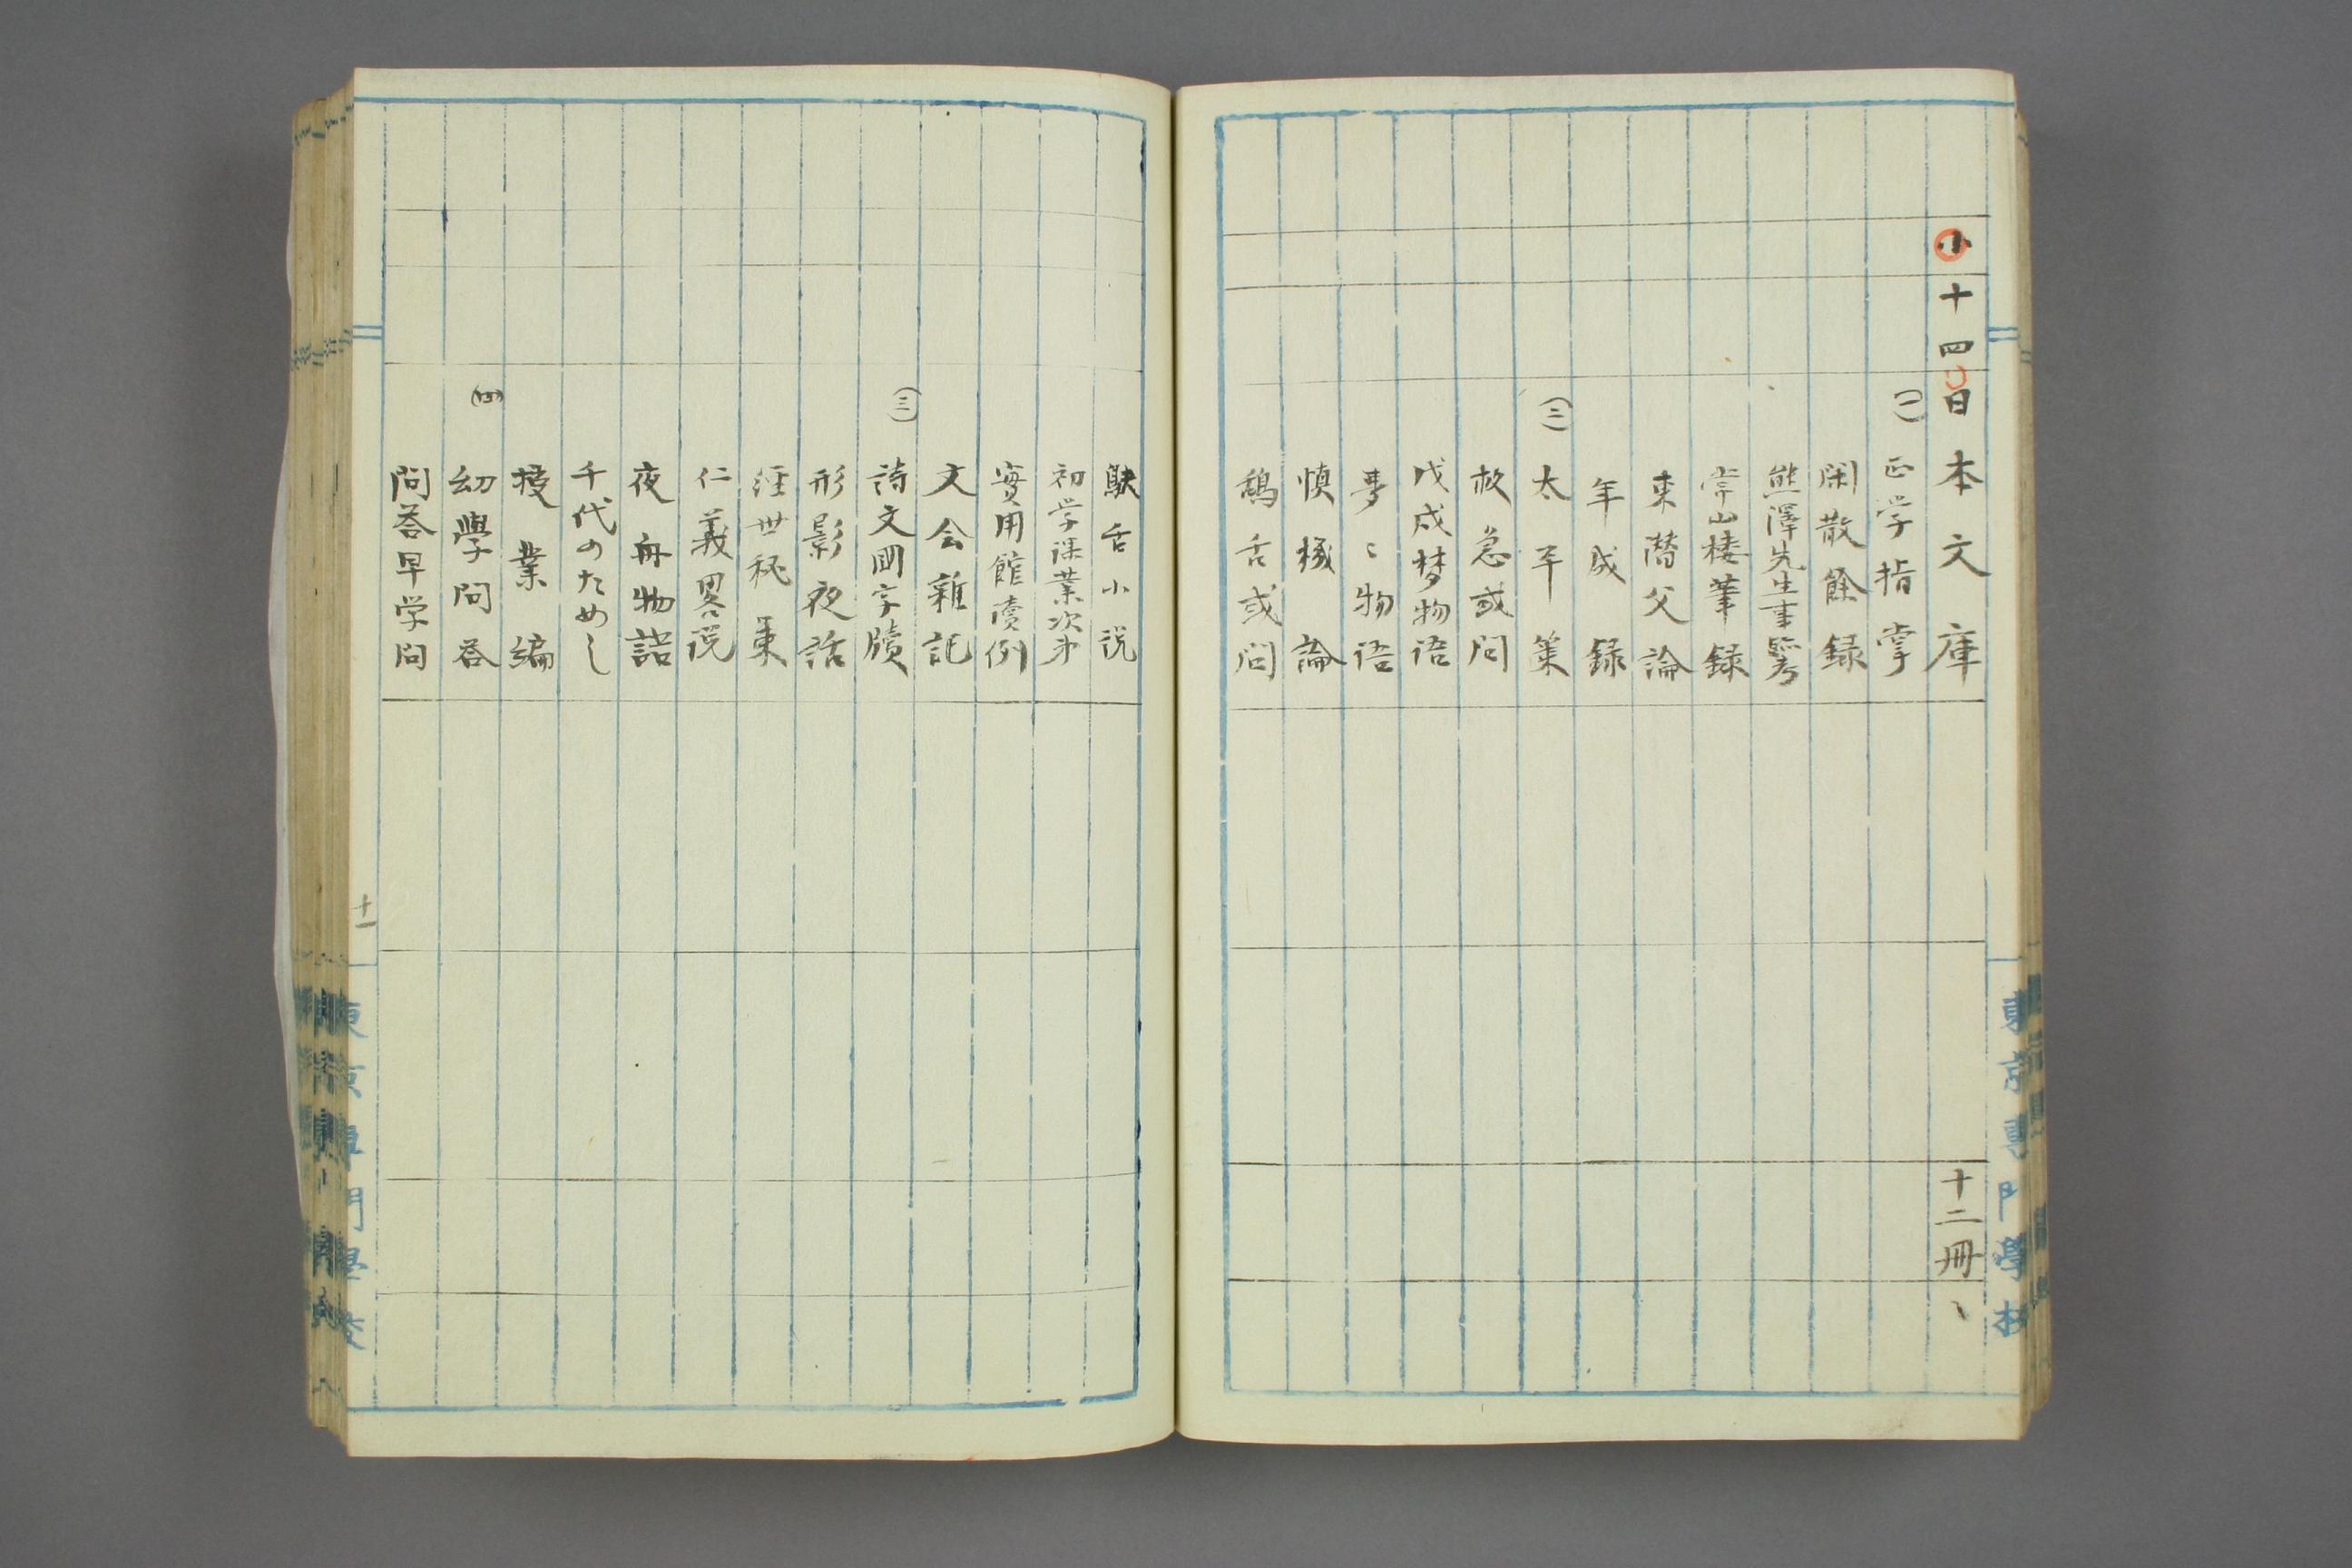 小 十四 日本文庫 十二冊、
(一) 正学指掌
閑散餘録
熊澤先生事蹟考
常山楼筆録
東潜父論
年成録
(二) 太平策
救急或問
戊戌梦物语
夢〻物语
慎機論
鴃舌或问
鴃舌小説
初学课業次第
實用館讀例
文会雜記
(三) 詩文国字牘
形影夜話
經世秘策
仁義畧説
夜舟物語
千代のためし
授業編
(四) 幼學問答
問答早学問
十一
東京專門學校
東京專門學校